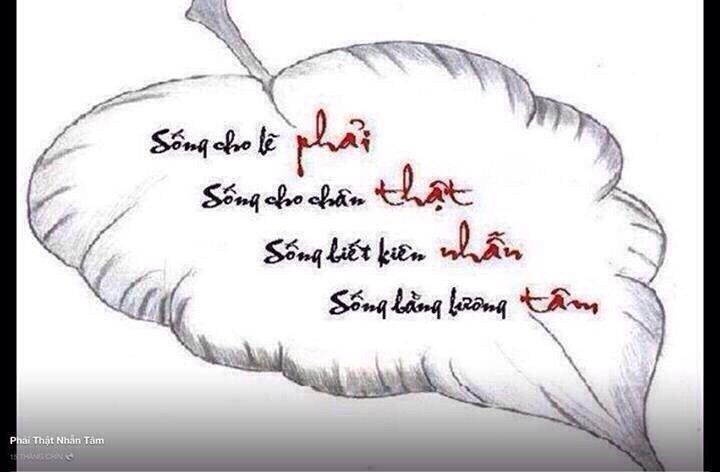 Sống cho lẽ phải
Sống cho chân thật
Sống biết kiên nhẫn
Sống bằng lương tâm
Phải Thật Nhẫn Tâm
15 THÁNG CHÍN